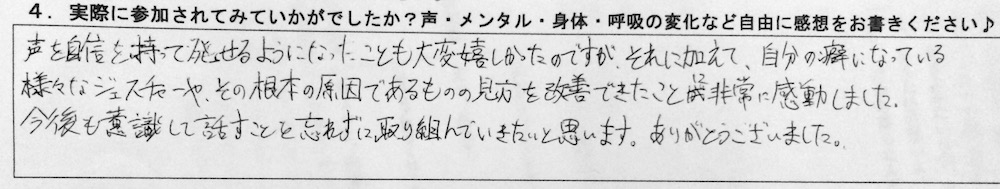 4．実際に参加されてみていかがでしたか？声・メンタル・身体・呼吸の変化など自由に感想をお書きください♪
声を自信を持って発せるようになったことも大変嬉しかったのですが、それに加えて、自分の癖になっている
様々なジェスチャーや、その根本の原因であるものの見方を改善できたことに非常に感動しました。
今後も意識して話すことを忘れずに取り組んでいきたいと思います。ありがとうございました。